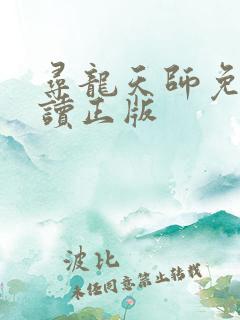 尋龍天師免
讀正版
波比
未經同意禁止轉載